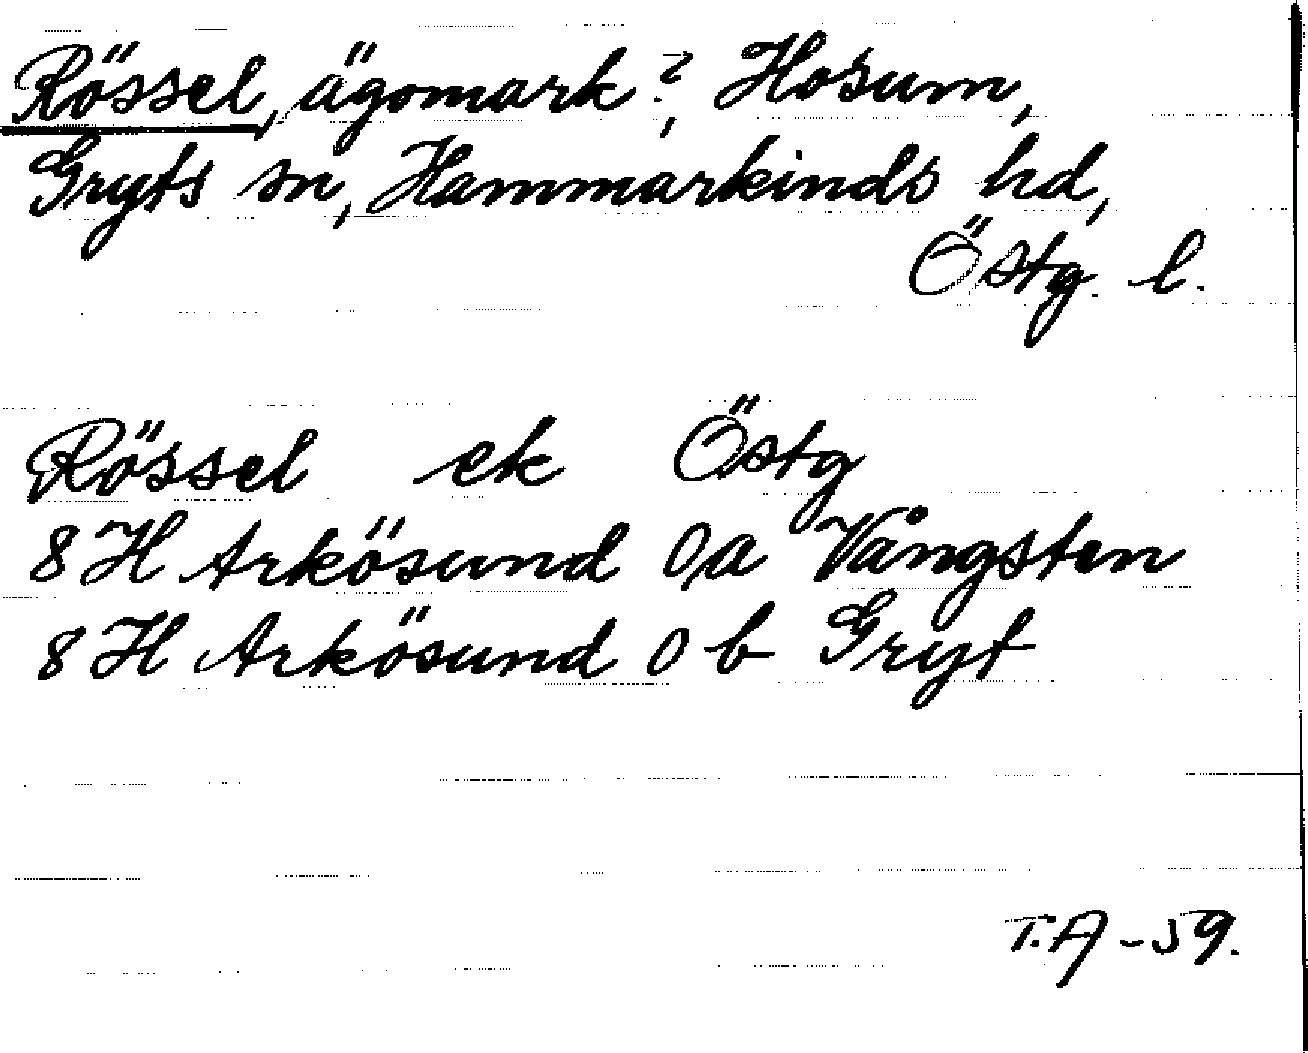 Rössel, ägomark?, Hosum,
Gryts sn, Hammarkinds hd,
Östg. l.
Rössel ek Östg
8 H Arkösund 0,a Vångsten
8 H Arkösund 0 b Gryt
T.A -59.